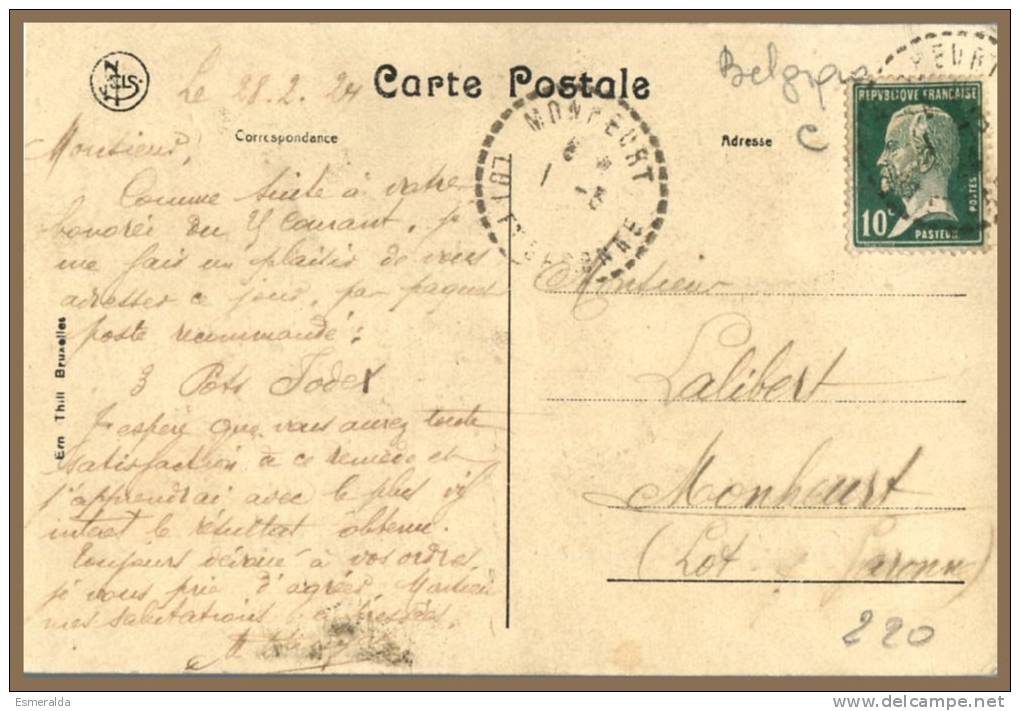 Le 28.2.24
Carte Postale
Belgique
C
Correspondance
Adresse
NELS
MONHEURT
LOT ET GARONNE
HEURT
REPVBLIQVE FRANCAISE
POSTES
10c
PASTEUR
Monsieur,
Comme suite à votre
honorée du Ct Courant, je
me fais un plaisir de vous
adresser ce jour, par paquet
poste recommandé :
3 Pots Todex
J'espère que vous aurez toute
satisfaction de ce remède et
j'apprendrai avec le plus vif
intéret le résultat obtenu.
Toujours dévoué à vos ordres,
je vous prie d'agréer, Monsieur
mes salutations empressées.
Monsieur
Lalibert
Monheurt
(Lot & Garonne)
220
Ern Thill Bruxelles
Esmeralda
www.delcampe.net